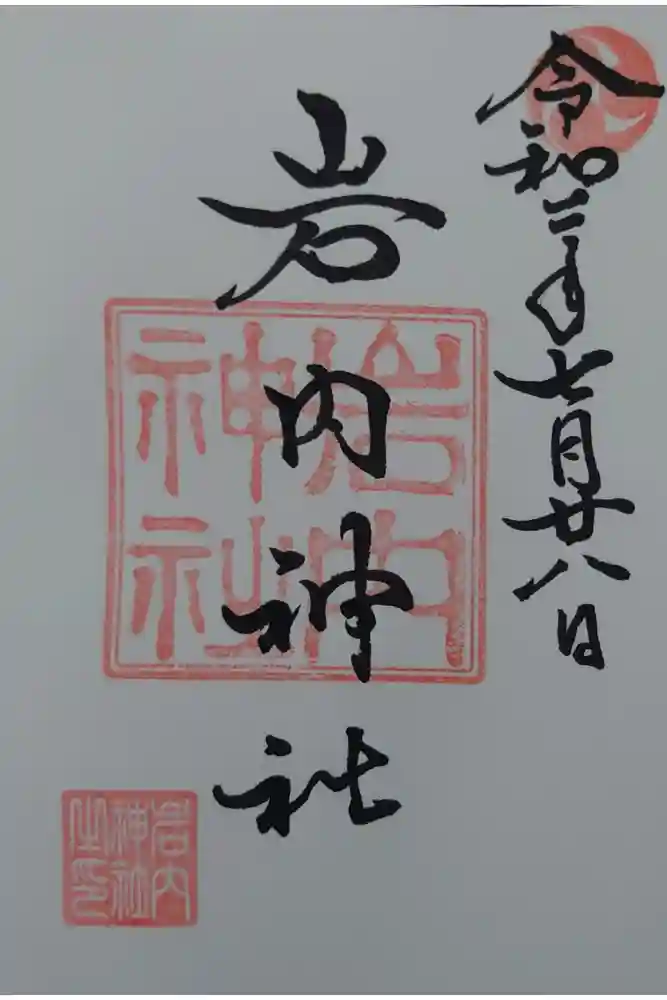 令和二年七月廿八日
岩内神社
岩内
神社
岩内
神社
之印